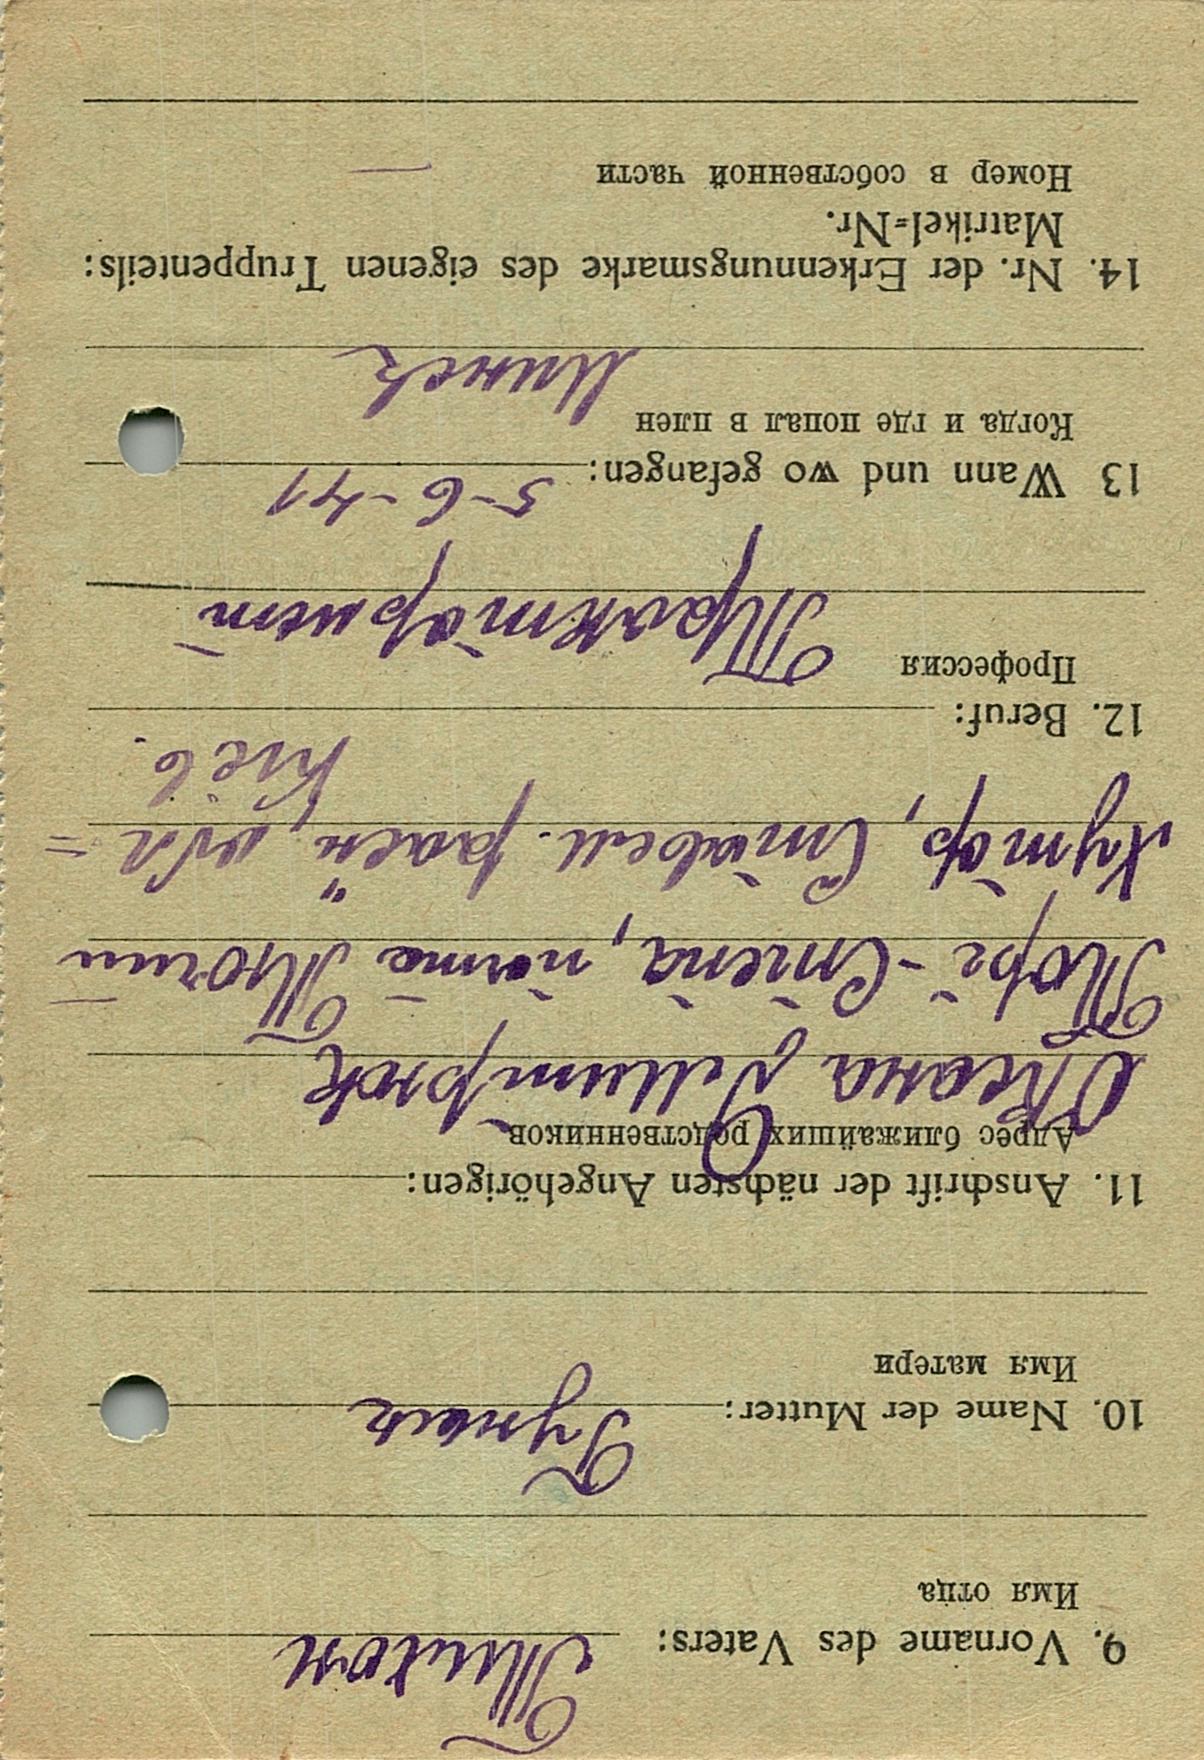 9. Vorname des Vaters: Тихон
Имя отца
10. Name der Mutter:
Имя матери
11. Anschrift der nächsten Angehörigen:
Адрес ближайших родственников
Дмитрюк
почта
Хутор, район, обл=
12. Beruf: Київ.
Профессия Тракторист
13 Wann und wo gefangen: 5-6-41
Когда и где попал в плен Минск
14. Nr. der Erkennungsmarke des eigenen Truppenteils:
Matrikel=Nr.
Номер в собственной части —